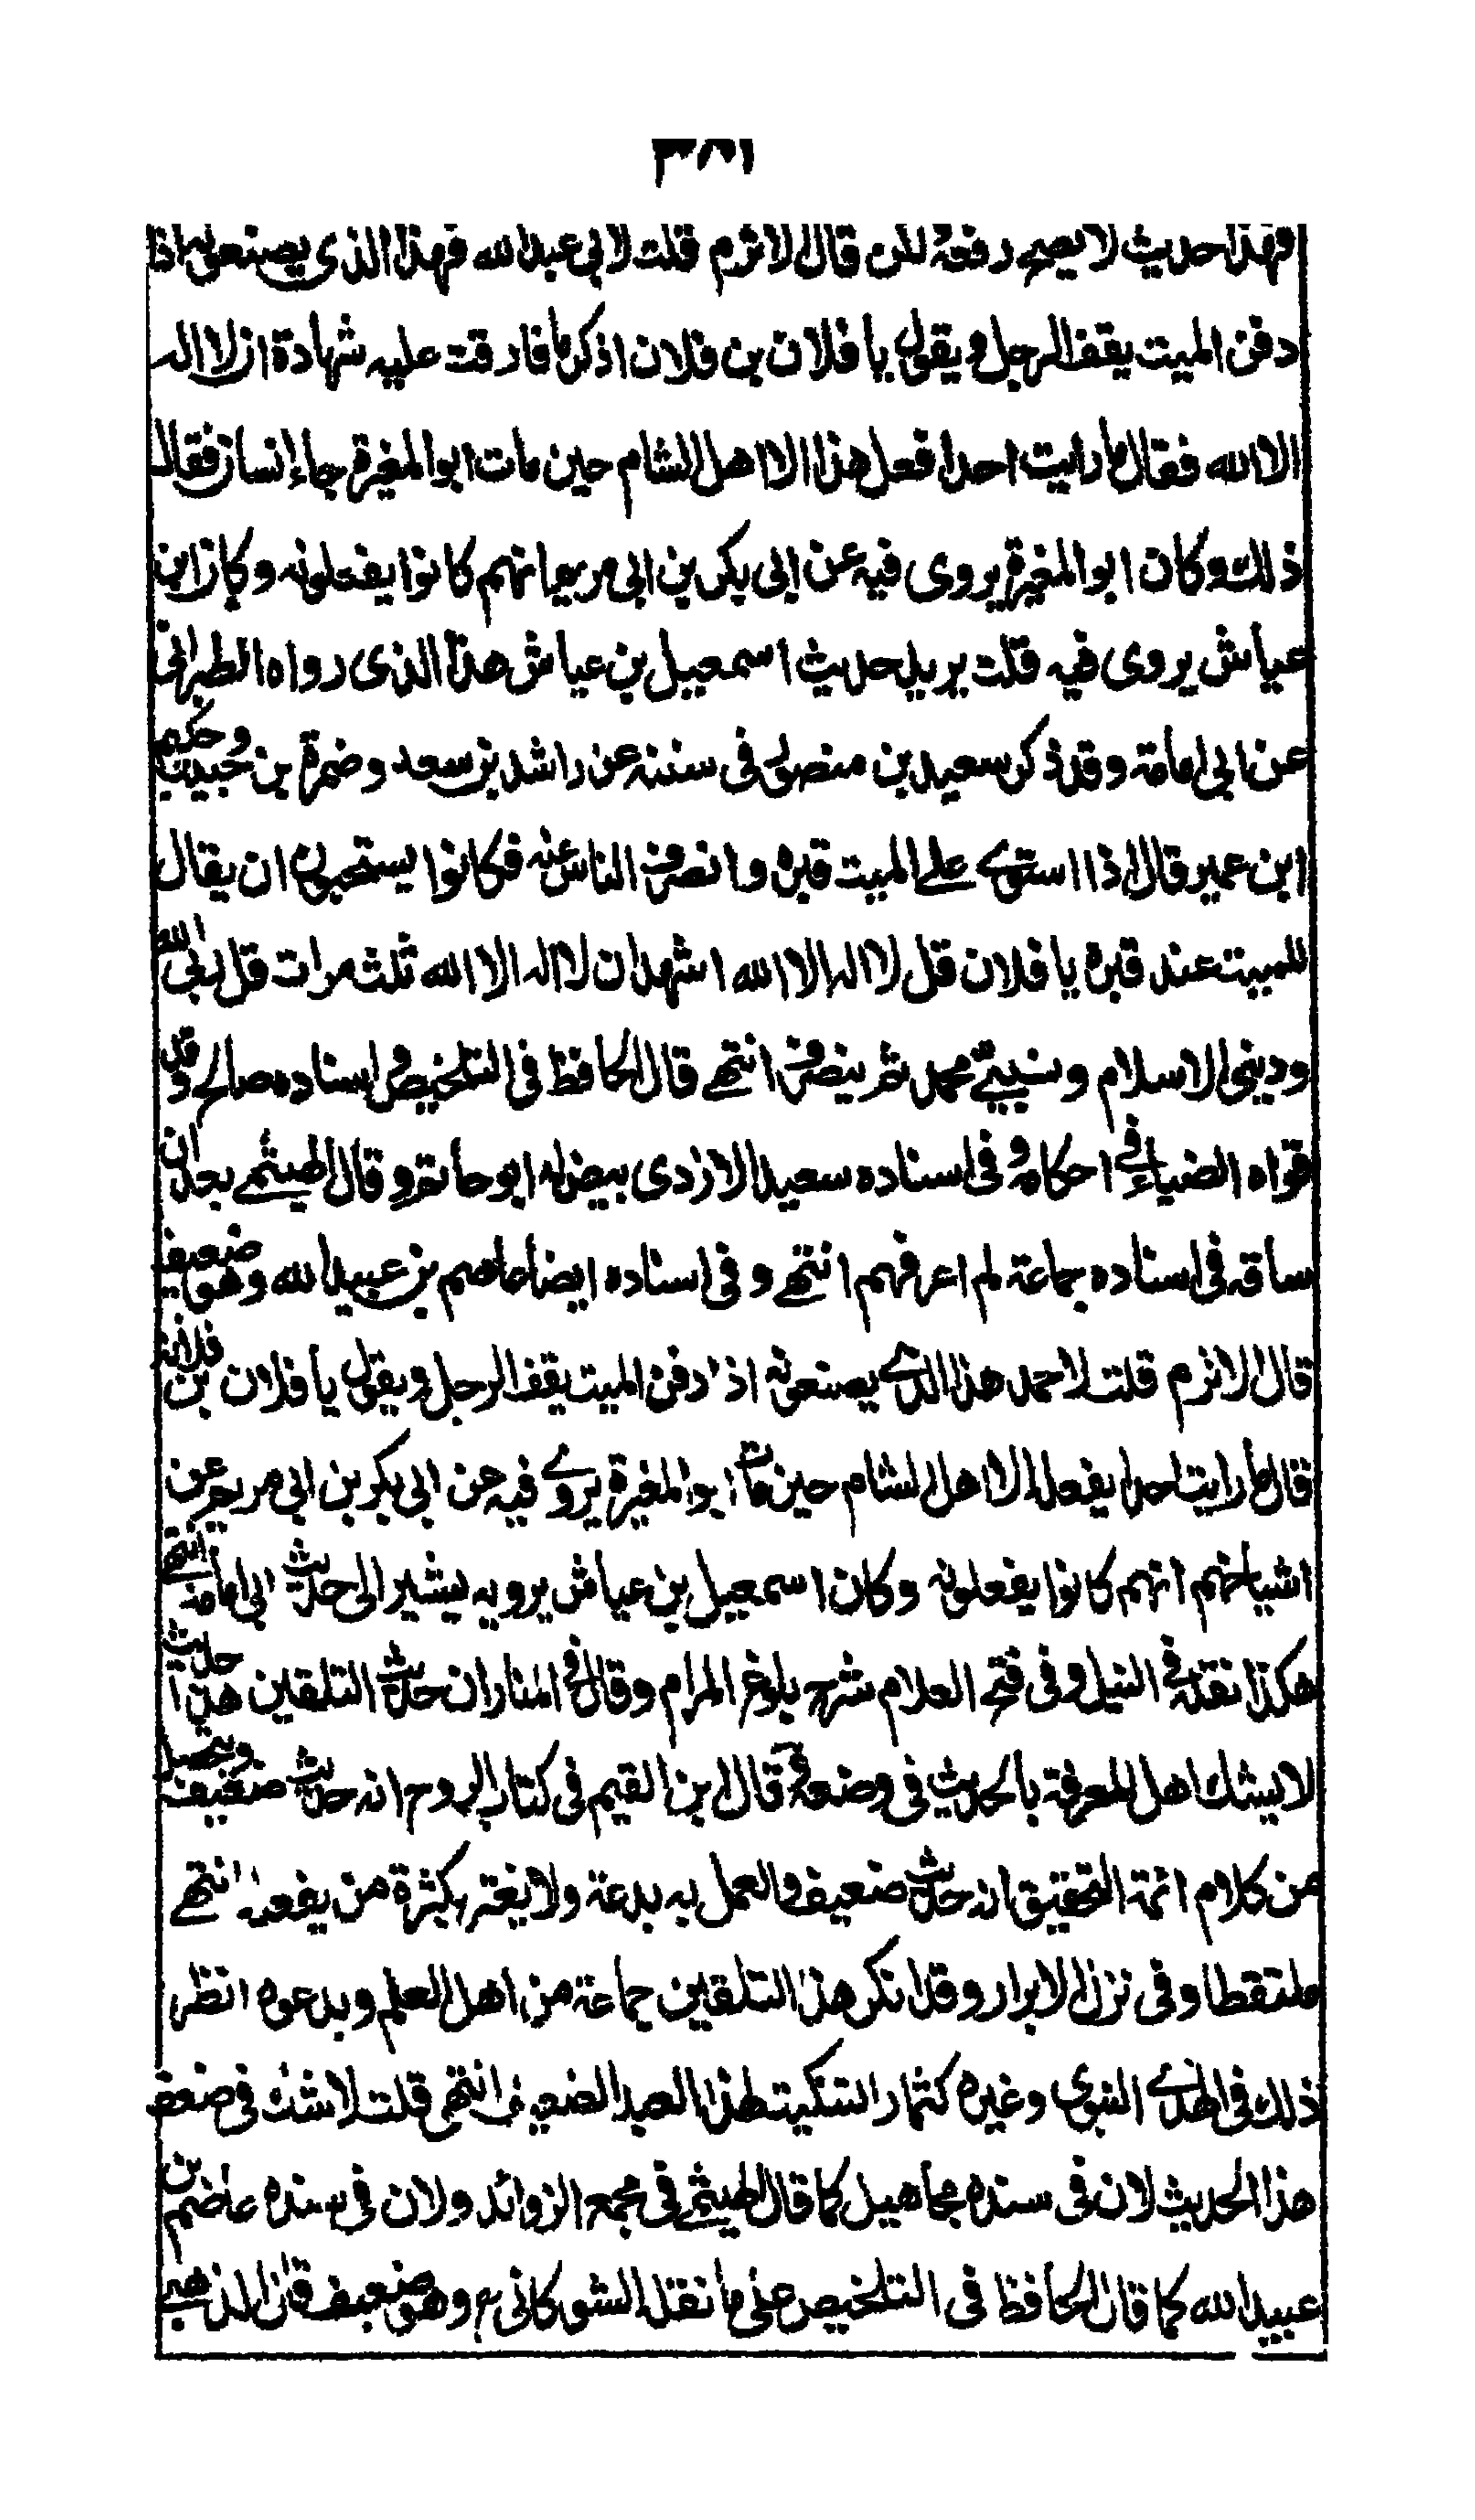 ٣٨١
فهذا حديث لا يصح رفعه لكن قال الاثرم قلت لابي عبد الله فهذا الذي يصنعونه اذا
دفن الميت يقف الرجل ويقول يا فلان بن فلان اذكر ما فارقت عليه شهادة ان لا اله
الا الله فقال ما رايت احدا فعل هذا الا اهل الشام حين مات ابو المغيرة جاء انسان فقال
ذلك وكان ابو المغيرة يروى فيه عن ابى بكر بن ابى مريم انهم كانوا يفعلونه وكان ابن
عياش يروى فيه قلت يريد حديث اسمعيل بن عياش هذا الذى رواه الطبرانى
عن ابي امامة وقد ذكر سعيد بن منصور فى سننه عن راشد بن سعد وضمرة بن حبيب وحكيم
ابن عمير قال اذا استوى على الميت قبره وانصرف الناس عنه فكانوا يستحبون ان يقال
للميت عند قبره يا فلان قل لا اله الا الله اشهد ان لا اله الا الله ثلث مرات قل ربى الله
ودينى الاسلام ونبيى محمد ثم ينصرف انتهى قال الحافظ فى التلخيص واسناده صالح وقد
قواه الضياء فى احكامه وفى اسناده سعيد الازدى بيض له ابو حاتم وقال الهيثمى بعد ان
ساقه فى اسناده جماعة لم اعرفهم انتهى وفى اسناده ايضا عاصم بن عبيد الله وهو ضعيف
قال الاثرم قلت لاحمد هذا الذى يصنعونه اذا دفن الميت يقف الرجل ويقول يا فلان بن فلانة
قال ما رايت احدا يفعله الا اهل الشام حين مات ابو المغيرة يروى فيه عن ابى بكر بن ابى مريم عن
اشياخهم انهم كانوا يفعلونه وكان اسمعيل بن عياش يرويه يشير الى حديث ابى امامة انتهى
هكذا نقله فى النيل وفى فتح العلام شرح بلوغ المرام وقال فى المنار ان حديث التلقين هذا حديث
لا يشك اهل المعرفة بالحديث فى وضعه قال ابن القيم فى كتاب الروح انه حديث ضعيف ويتحصل
من كلام ائمة التحقيق انه حديث ضعيف والعمل به بدعة ولا يغتر بكثرة من يفعله انتهى
ملتقطا وفى نزل الابرار وقد انكر هذا التلقين جماعة من اهل العلم وبدعوه انظر
ذلك فى الهدى النبوى وغيره كثمار التنكيت لهذا العبد الضعيف انتهى قلت لا شك فى ضعف
هذا الحديث لان فى سنده مجاهيل كما قال الهيثمى فى مجمع الزوائد ولان فى سنده عاصم بن
عبيد الله كما قال الحافظ فى التلخيص على ما نقل الشوكانى وهو ضعيف قال الذهبى